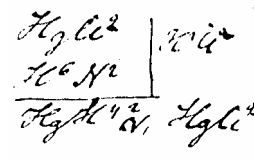 HgCl² H²Cl²
H⁶N²
HgH⁴N², HgCl²